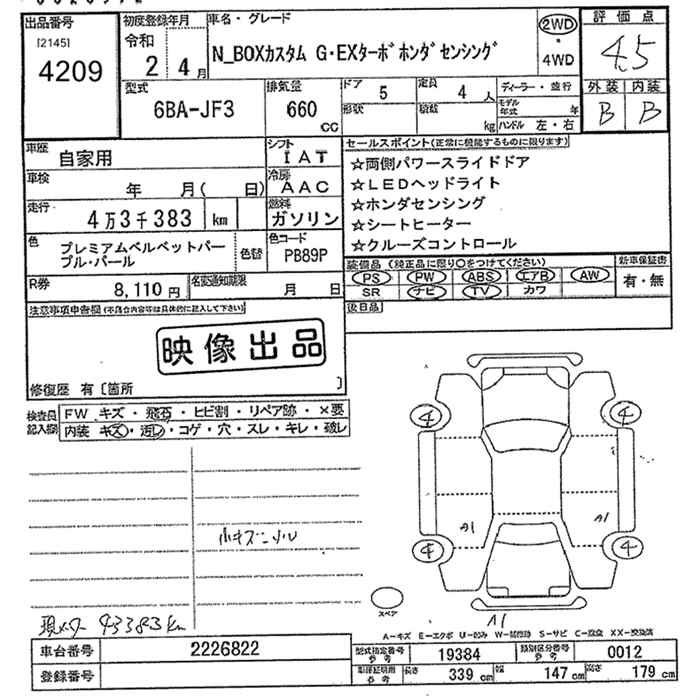 出品番号
[2145]
4209
初度登録年月
令和
2 4月
車名・グレード
N_BOXカスタム G・EXターボホンダセンシング
2WD
・
4WD
評価点
4.5
外装 内装
B B
型式
6BA-JF3
排気量
660
cc
ドア 5
定員 4 人
形状
積載 kg
ディーラー・並行
モデル年式 年
ハンドル 左・右
車歴
自家用
シフト
IAT
車検
年 月( 日)
冷房
AAC
走行
4万3千383 km
燃料
ガソリン
色
プレミアムベルベットパー
プル・パール
色替
色コード
PB89P
R券
8,110円
名変通知期限
月 日
セールスポイント(正常に機能するものに限ります)
☆両側パワースライドドア
☆LEDヘッドライト
☆ホンダセンシング
☆シートヒーター
☆クルーズコントロール
装備品 (純正品に限り○をつけてください)
PS PW ABS エアB AW
SR ナビ TV カワ
新車保証書
有・無
後日品
注意事項申告欄(不具合内容等は具体的に記入して下さい)
映像出品
修復歴 有〔箇所 〕
検査員
記入欄
FW キズ・飛石・ヒビ割・リペア跡・×要
内装 キズ・汚レ・コゲ・穴・スレ・キレ・破レ
小キズニノル
現メーター 43383km
4 4
A1 A1
4 4
スペア
A1
A-キズ E-エクボ U-凹み W-補修跡 S-サビ C-腐食 XX-交換済
車台番号
2226822
登録番号
型式指定番号
参考
19384
類別区分番号
参考
0012
車庫証明用
参考
長さ 339 cm 幅 147 cm 高さ 179 cm